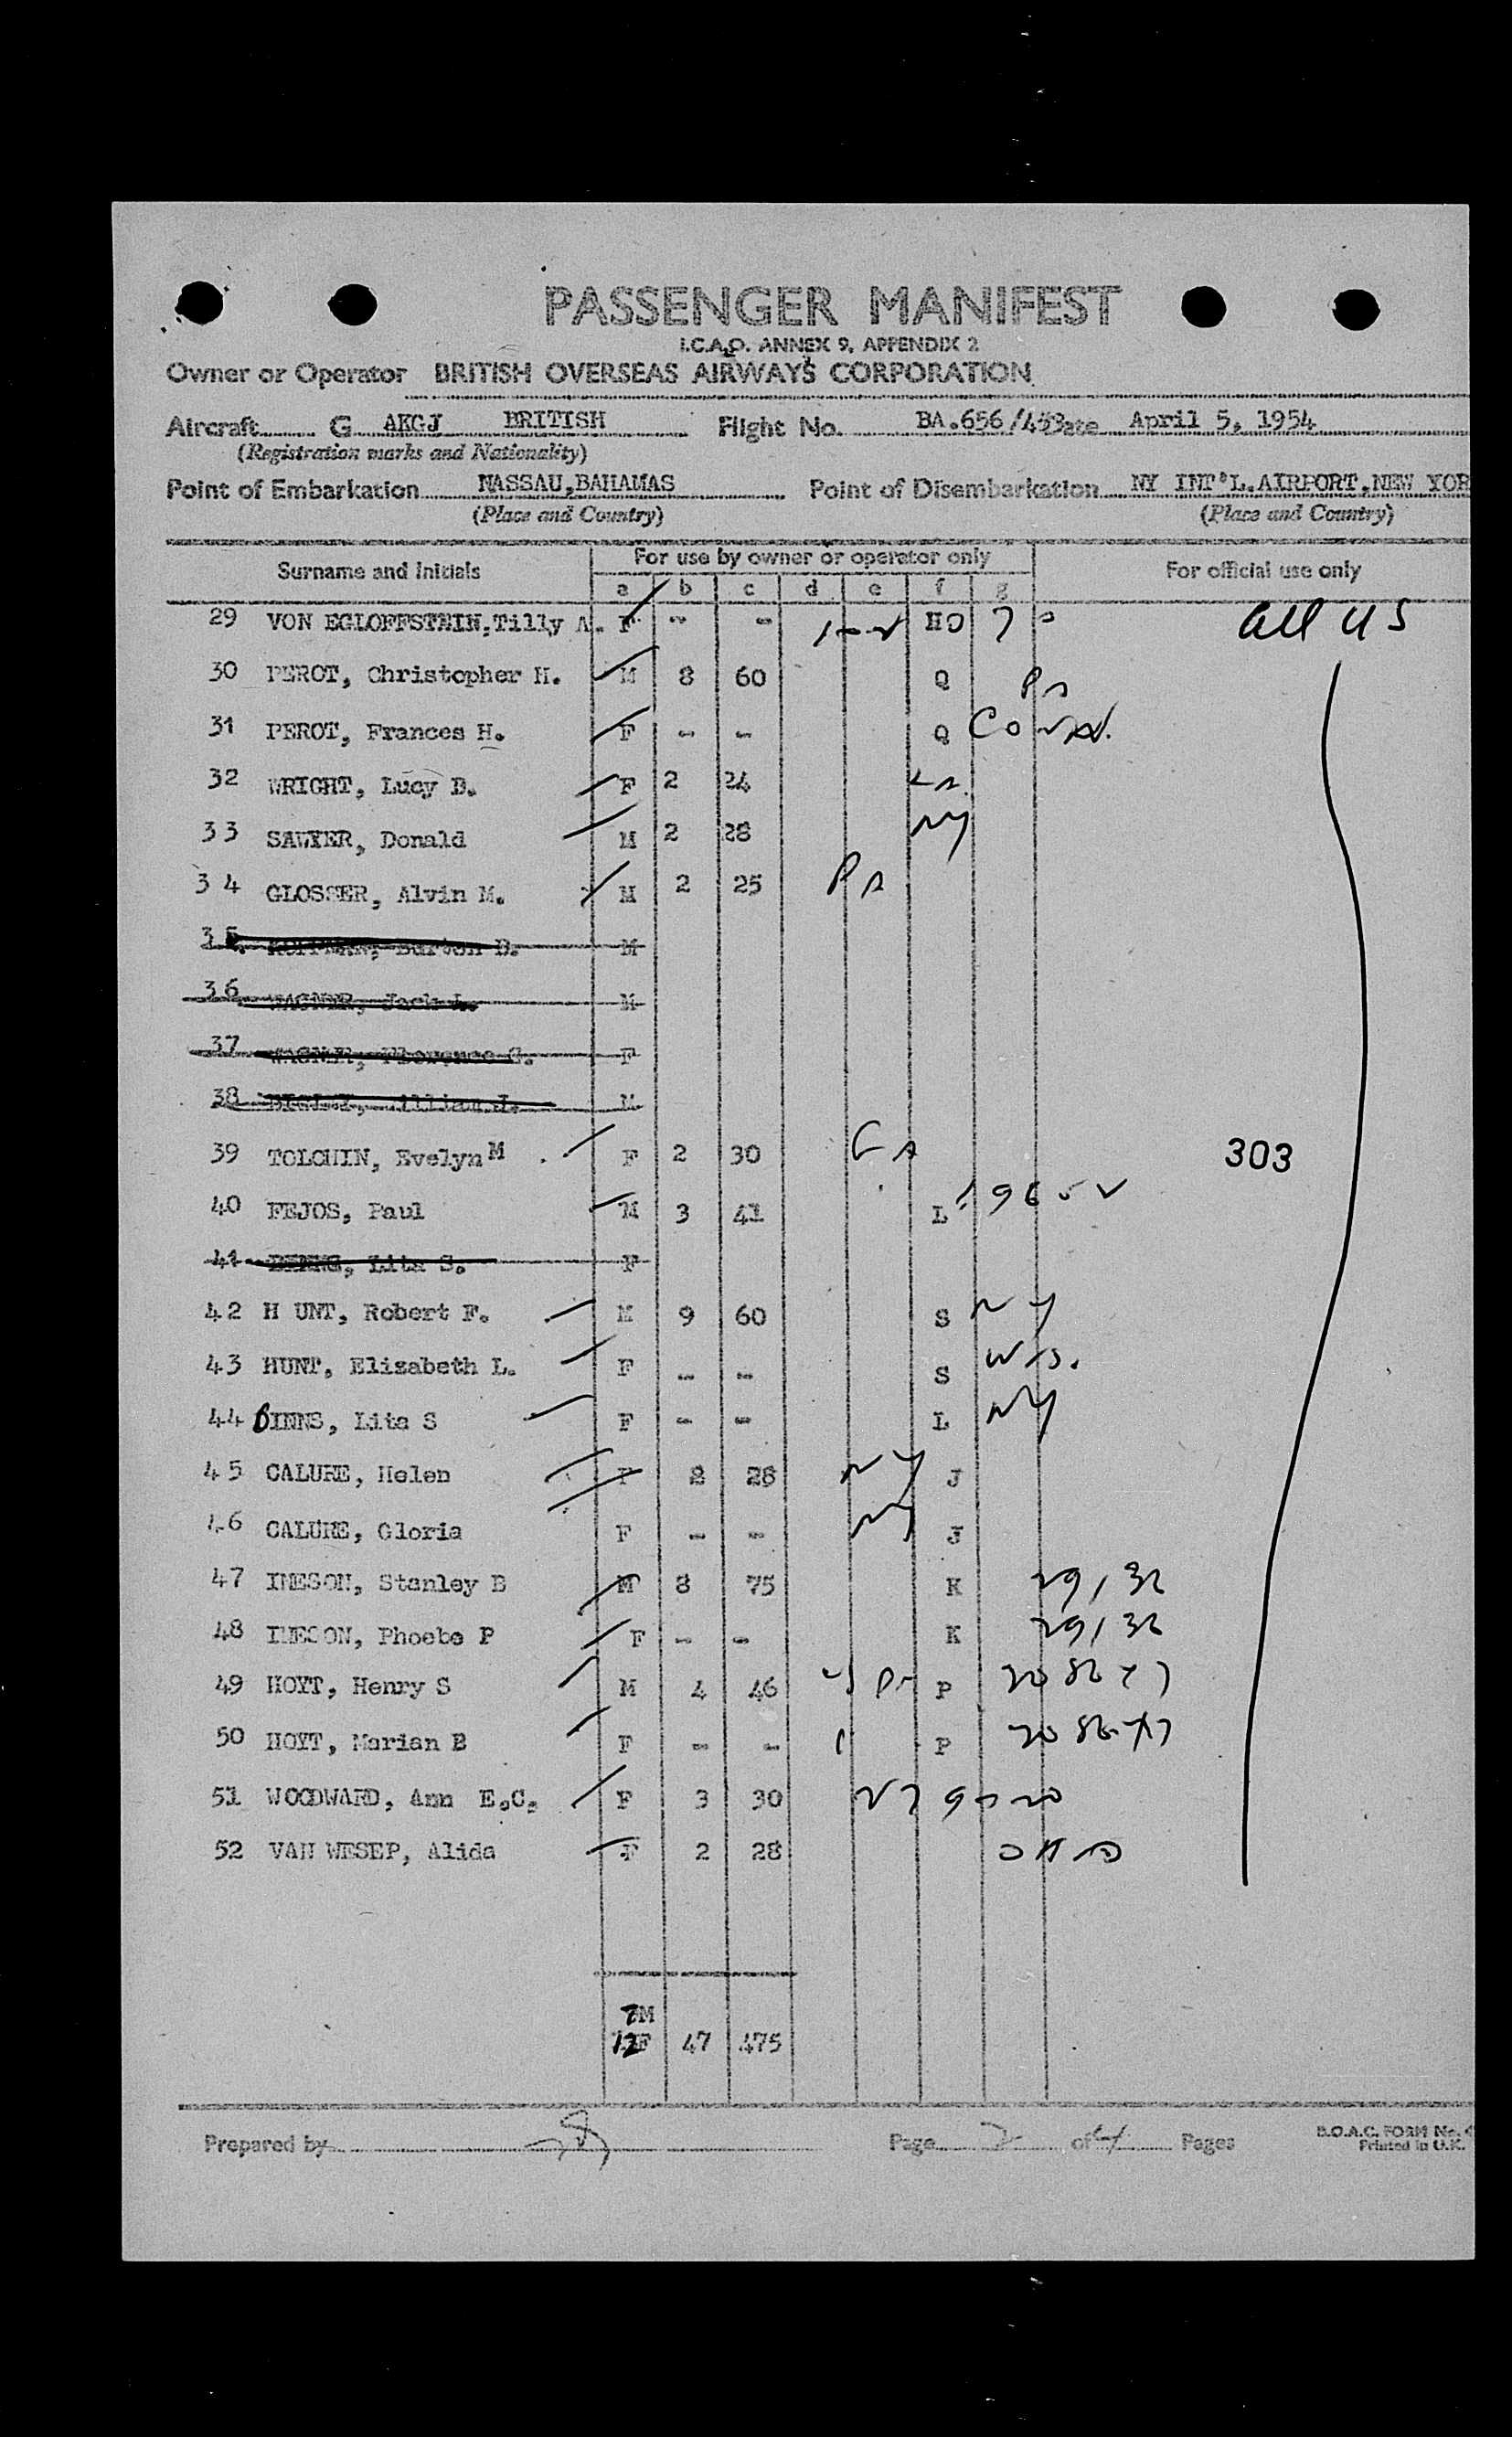 PASSENGER MANIFEST
I.C.A.O. ANNEX 9, APPENDIX 2
Owner or Operator BRITISH OVERSEAS AIRWAYS CORPORATION
Aircraft G AKGJ BRITISH Flight No. BA.656/453 Date April 5, 1954
(Registration marks and Nationality)
Point of Embarkation NASSAU,BAHAMAS Point of Disembarkation NY INT'L.AIRPORT,NEW YOR
(Place and Country) (Place and Country)
Surname and Initials For use by owner or operator only For official use only
a b c d e f g
29 VON EGLOFFSTEIN,Tilly A. F - - HO All US
30 PEROT, Christopher H. M 8 60 Q Pa
31 PEROT, Frances H. F - - Q Conn.
32 WRIGHT, Lucy B. F 2 24
33 SAWYER, Donald M 2 28 NY
34 GLOSSER, Alvin M. M 2 25 Pa
35 Burton B. M
36 WAGNER, Jack L. M
37 WAGNER, Florence G. F
38 William J. M
39 TOLCHIN, Evelyn M F 2 30 303
40 FEJOS, Paul M 3 41 L
41 Lita S. F
42 H UNT, Robert F. M 9 60 S NY
43 HUNT, Elizabeth L. F - - S Wis.
44 BINNS, Lita S F - - L NY
45 CALURE, Helen F 2 28 NY J
46 CALURE, Gloria F - - NY J
47 IMESON, Stanley B M 8 75 K
48 IMESON, Phoebe P F - - K
49 HOYT, Henry S M 4 46 P
50 HOYT, Marian B F - - P
51 WOODWARD, Ann E.C. F 3 30
52 VAN WESEP, Alida F 2 28
7M
12F 47 475
Prepared by Page 2 of 4 Pages
B.O.A.C. FORM No.
Printed in U.K.